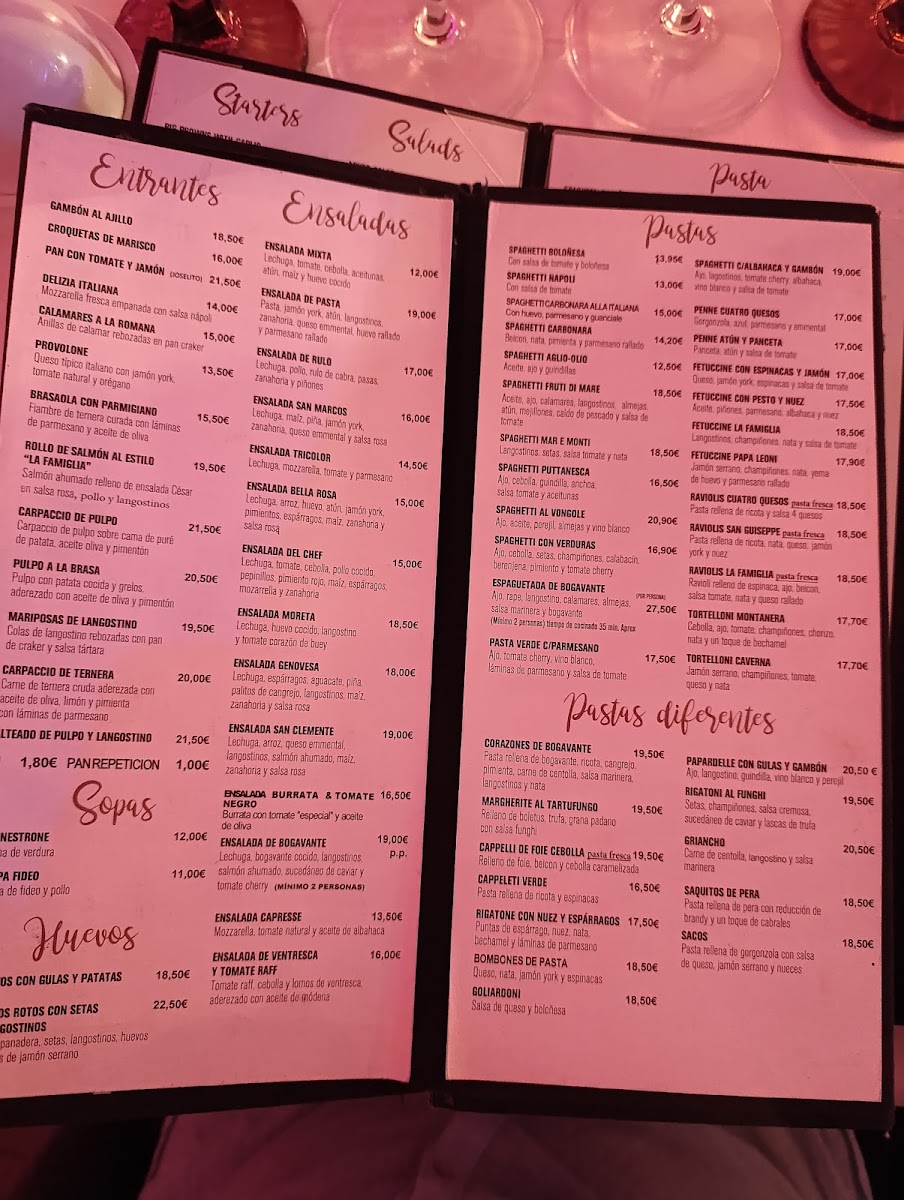 Starters
Salads
Pasta
Entrantes
GAMBÓN AL AJILLO 18,50€
CROQUETAS DE MARISCO 16,00€
PAN CON TOMATE Y JAMÓN (JOSELITO) 21,50€
DELIZIA ITALIANA 14,00€
Mozzarella fresca empanada con salsa nápoli
CALAMARES A LA ROMANA 15,00€
Anillas de calamar rebozadas en pan craker
PROVOLONE 13,50€
Queso típico italiano con jamón york,
tomate natural y orégano
BRASAOLA CON PARMIGIANO 15,50€
Fiambre de ternera curada con láminas
de parmesano y aceite de oliva
ROLLO DE SALMÓN AL ESTILO 19,50€
"LA FAMIGLIA"
Salmón ahumado relleno de ensalada César
en salsa rosa, pollo y langostinos
CARPACCIO DE PULPO 21,50€
Carpaccio de pulpo sobre cama de puré
de patata, aceite oliva y pimentón
PULPO A LA BRASA 20,50€
Pulpo con patata cocida y grelos,
aderezado con aceite de oliva y pimentón
MARIPOSAS DE LANGOSTINO 19,50€
Colas de langostino rebozadas con pan
de craker y salsa tártara
CARPACCIO DE TERNERA 20,00€
Carne de ternera cruda aderezada con
aceite de oliva, limón y pimienta
con láminas de parmesano
LTEADO DE PULPO Y LANGOSTINO 21,50€
1,80€ PAN REPETICION 1,00€
Sopas
NESTRONE 12,00€
a de verdura
PA FIDEO 11,00€
a de fideo y pollo
Huevos
OS CON GULAS Y PATATAS 18,50€
OS ROTOS CON SETAS 22,50€
GOSTINOS
panadera, setas, langostinos, huevos
s de jamón serrano
Ensaladas
ENSALADA MIXTA 12,00€
Lechuga, tomate, cebolla, aceitunas,
atún, maíz y huevo cocido
ENSALADA DE PASTA 19,00€
Pasta, jamón york, atún, langostinos,
zanahoria, queso emmental, huevo rallado
y parmesano rallado
ENSALADA DE RULO 17,00€
Lechuga, pollo, rulo de cabra, pasas,
zanahoria y piñones
ENSALADA SAN MARCOS 16,00€
Lechuga, maíz, piña, jamón york,
zanahoria, queso emmental y salsa rosa
ENSALADA TRICOLOR 14,50€
Lechuga, mozzarella, tomate y parmesano
ENSALADA BELLA ROSA 15,00€
Lechuga, arroz, huevo, atún, jamón york,
pimientos, espárragos, maíz, zanahoria y
salsa rosa
ENSALADA DEL CHEF 15,00€
Lechuga, tomate, cebolla, pollo cocido,
pepinillos, pimiento rojo, maíz, espárragos,
mozarrella y zanahoria
ENSALADA MORETA 18,50€
Lechuga, huevo cocido, langostino
y tomate corazón de buey
ENSALADA GENOVESA 18,00€
Lechuga, espárragos, aguacate, piña,
palitos de cangrejo, langostinos, maíz,
zanahoria y salsa rosa
ENSALADA SAN CLEMENTE 19,00€
Lechuga, arroz, queso emmental,
langostinos, salmón ahumado, maíz,
zanahoria y salsa rosa
ENSALADA BURRATA & TOMATE 16,50€
NEGRO
Burrata con tomate "especial" y aceite
de oliva
ENSALADA DE BOGAVANTE 19,00€
Lechuga, bogavante cocido, langostinos, p.p.
salmón ahumado, sucedáneo de caviar y
tomate cherry (MÍNIMO 2 PERSONAS)
ENSALADA CAPRESSE 13,50€
Mozzarella, tomate natural y aceite de albahaca
ENSALADA DE VENTRESCA 16,00€
Y TOMATE RAFF
Tomate raff, cebolla y lomos de ventresca,
aderezado con aceite de módena
Pastas
SPAGHETTI BOLOÑESA 13,95€
Con salsa de tomate y boloñesa
SPAGHETTI NAPOLI 13,00€
Con salsa de tomate
SPAGHETTI CARBONARA ALLA ITALIANA 15,00€
Con huevo, parmesano y guanciale
SPAGHETTI CARBONARA 14,20€
Beicon, nata, pimienta y parmesano rallado
SPAGHETTI AGLIO-OLIO 12,50€
Aceite, ajo y guindillas
SPAGHETTI FRUTI DI MARE 18,50€
Aceite, ajo, calamares, langostinos, almejas,
atún, mejillones, caldo de pescado y salsa de
tomate
SPAGHETTI MAR E MONTI 18,50€
Langostinos, setas, salsa tomate y nata
SPAGHETTI PUTTANESCA 16,50€
Ajo, cebolla, guindilla, anchoa,
salsa tomate y aceitunas
SPAGHETTI AL VONGOLE 20,90€
Ajo, aceite, perejil, almejas y vino blanco
SPAGHETTI CON VERDURAS 16,90€
Ajo, cebolla, setas, champiñones, calabacín,
berenjena, pimiento y tomate cherry
ESPAGUETADA DE BOGAVANTE (POR PERSONA)
Ajo, rape, langostino, calamares, almejas, 27,50€
salsa marinera y bogavante
(Mínimo 2 personas) tiempo de cocinado 35 min. Aprox
PASTA VERDE C/PARMESANO 17,50€
Ajo, tomate cherry, vino blanco,
láminas de parmesano y salsa de tomate
SPAGHETTI C/ALBAHACA Y GAMBÓN 19,00€
Ajo, lagostinos, tomate cherry, albahaca,
vino blanco y salsa de tomate
PENNE CUATRO QUESOS 17,00€
Gorgonzola, azul, parmesano y emmental
PENNE ATÚN Y PANCETA 17,00€
Panceta, atún y salsa de tomate
FETUCCINE CON ESPINACAS Y JAMÓN 17,00€
Queso, jamón york, espinacas y salsa de tomate
FETUCCINE CON PESTO Y NUEZ 17,50€
Aceite, piñones, parmesano, albahaca y nuez
FETUCCINE LA FAMIGLIA 18,50€
Langostinos, champiñones, nata y salsa de tomate
FETUCCINE PAPA LEONI 17,90€
Jamón serrano, champiñones, nata, yema
de huevo y parmesano rallado
RAVIOLIS CUATRO QUESOS pasta fresca 18,50€
Pasta rellena de ricota y salsa 4 quesos
RAVIOLIS SAN GUISEPPE pasta fresca 18,50€
Pasta rellena de ricota, nata, queso, jamón
york y nuez
RAVIOLIS LA FAMIGLIA pasta fresca 18,50€
Ravioli relleno de espinaca, ajo, beicon,
salsa tomate, nata y queso rallado
TORTELLONI MONTANERA 17,70€
Cebolla, ajo, tomate, champiñones, chorizo,
nata y un toque de bechamel
TORTELLONI CAVERNA 17,70€
Jamón serrano, champiñones, tomate,
queso y nata
Pastas diferentes
CORAZONES DE BOGAVANTE 19,50€
Pasta rellena de bogavante, ricota, cangrejo,
pimienta, carne de centolla, salsa marinera,
langostinos y nata
MARGHERITE AL TARTUFUNGO 19,50€
Relleno de boletus, trufa, grana padano
con salsa funghi
CAPPELLI DE FOIE CEBOLLA pasta fresca 19,50€
Relleno de foie, beicon y cebolla caramelizada
CAPPELETI VERDE 16,50€
Pasta rellena de ricota y espinacas
RIGATONE CON NUEZ Y ESPÁRRAGOS 17,50€
Puntas de espárrago, nuez, nata,
bechamel y láminas de parmesano
BOMBONES DE PASTA 18,50€
Queso, nata, jamón york y espinacas
GOLIARDONI 18,50€
Salsa de queso y boloñesa
PAPARDELLE CON GULAS Y GAMBÓN 20,50 €
Ajo, langostino, guindilla, vino blanco y perejil
RIGATONI AL FUNGHI 19,50€
Setas, champiñones, salsa cremosa,
sucedáneo de caviar y lascas de trufa
GRIANCHO 20,50€
Carne de centolla, langostino y salsa
marinera
SAQUITOS DE PERA 18,50€
Pasta rellena de pera con reducción de
brandy y un toque de cabrales
SACOS 18,50€
Pasta rellena de gorgonzola con salsa
de queso, jamón serrano y nueces